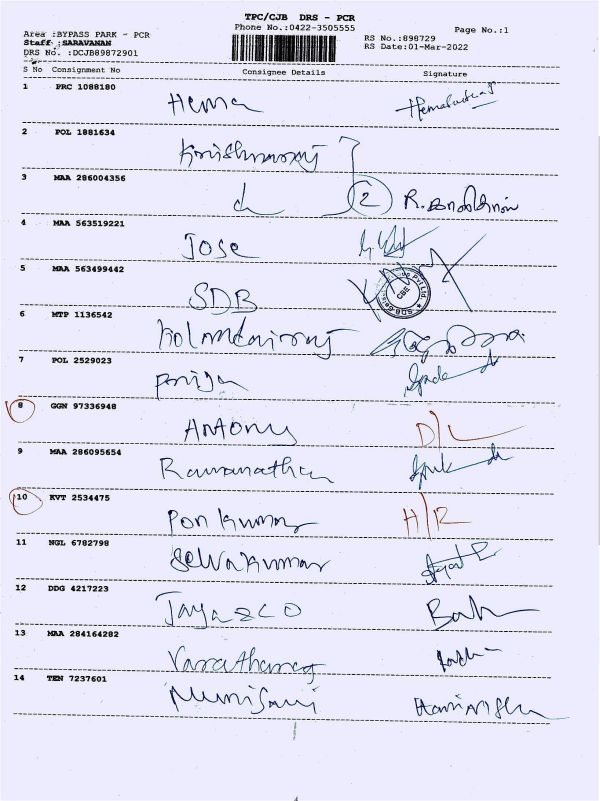 TPC/CJB DRS - PCR
Area :BYPASS PARK - PCR
Phone No.:0422-3505555
Page No.:1
Staff :SARAVANAN
RS No.:898729
DRS No. :DCJB89872901
RS Date:01-Mar-2022
S No Consignment No Consignee Details Signature
1 PRC 1088180
Hema
2 POL 1881634
Krishnaraj
3 MAA 286004356
2 R.
4 MAA 563519221
Jose
5 MAA 563499442
SDB
CBE
6 MTP 1136542
7 POL 2529023
Priya
8 GGN 97336948
Antony D/L
9 MAA 286095654
Ramanathan
10 KVT 2534475
Ponkumar H/R
11 NGL 6782798
Selvakumar
12 DDG 4217223
13 MAA 284164282
Varatharaj
14 TEN 7237601
Munisami